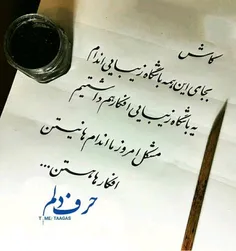 کاش
بجای این همه باشگاه زیبایی اندام
یه باشگاه زیبایی افکار هم داشتیم
مشکل امروز ما اندام ها نیستن
افکار ها هستن...
حرف دلم
T.ME/TAAGAB